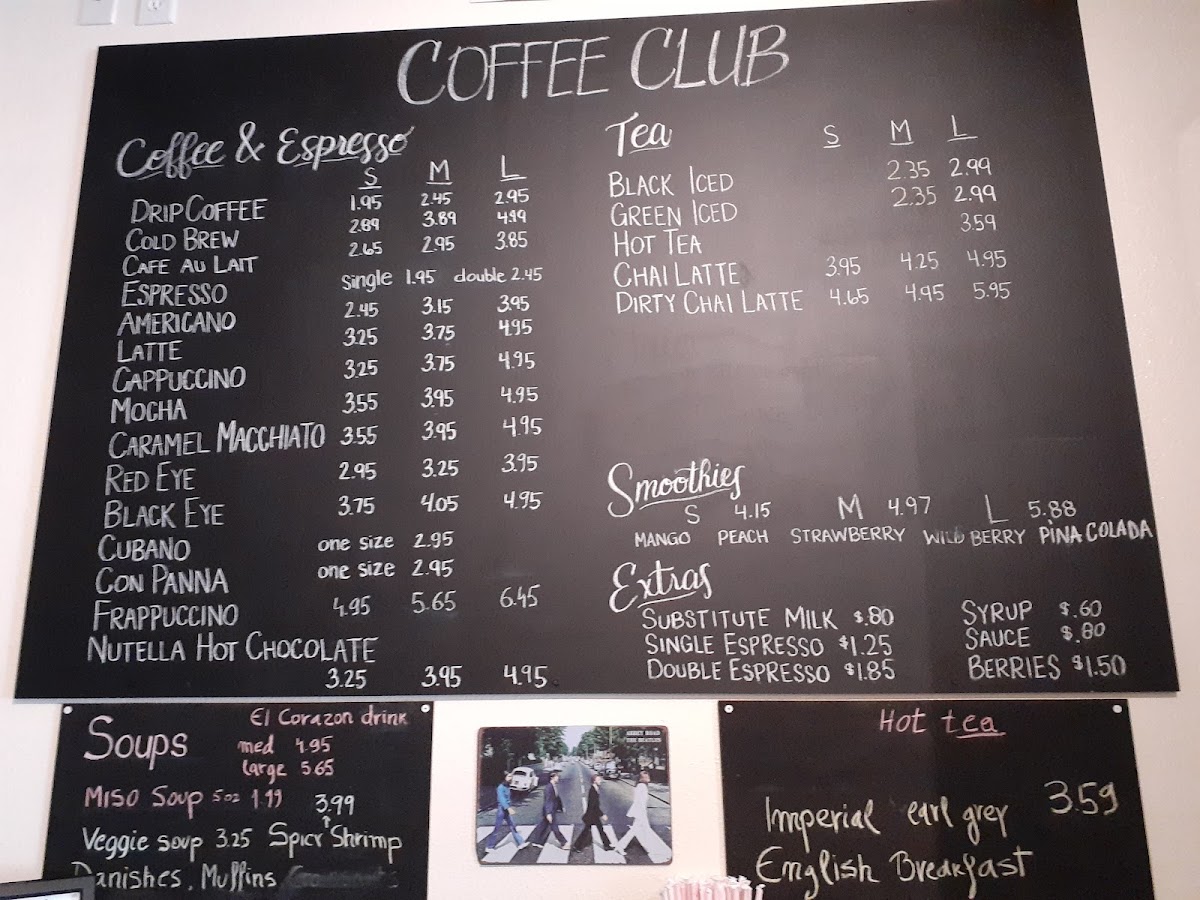 COFFEE CLUB
Coffee & Espresso
S M L
DRIP COFFEE 1.95 2.45 2.95
COLD BREW 2.89 3.89 4.99
CAFE AU LAIT 2.65 2.95 3.85
ESPRESSO single 1.95 double 2.45
AMERICANO 2.45 3.15 3.95
LATTE 3.25 3.75 4.95
CAPPUCCINO 3.25 3.75 4.95
MOCHA 3.55 3.95 4.95
CARAMEL MACCHIATO 3.55 3.95 4.95
RED EYE 2.95 3.25 3.95
BLACK EYE 3.75 4.05 4.95
CUBANO one size 2.95
CON PANNA one size 2.95
FRAPPUCCINO 4.95 5.65 6.45
NUTELLA HOT CHOCOLATE
3.25 3.95 4.95
Tea S M L
BLACK ICED 2.35 2.99
GREEN ICED 2.35 2.99
HOT TEA 3.59
CHAI LATTE 3.95 4.25 4.95
DIRTY CHAI LATTE 4.65 4.95 5.95
Smoothies
S 4.15 M 4.97 L 5.88
MANGO PEACH STRAWBERRY WILD BERRY PINA COLADA
Extras
SUBSTITUTE MILK $.80 SYRUP $.60
SINGLE ESPRESSO $1.25 SAUCE $.80
DOUBLE ESPRESSO $1.85 BERRIES $1.50
Soups
El Corazon drink
med 4.95
large 5.65
MISO SOUP 5oz 1.99 3.99
Veggie soup 3.25 Spicy Shrimp
Danishes, Muffins
ABBEY ROAD
THE BEATLES
Hot tea
Imperial earl grey 3.59
English Breakfast